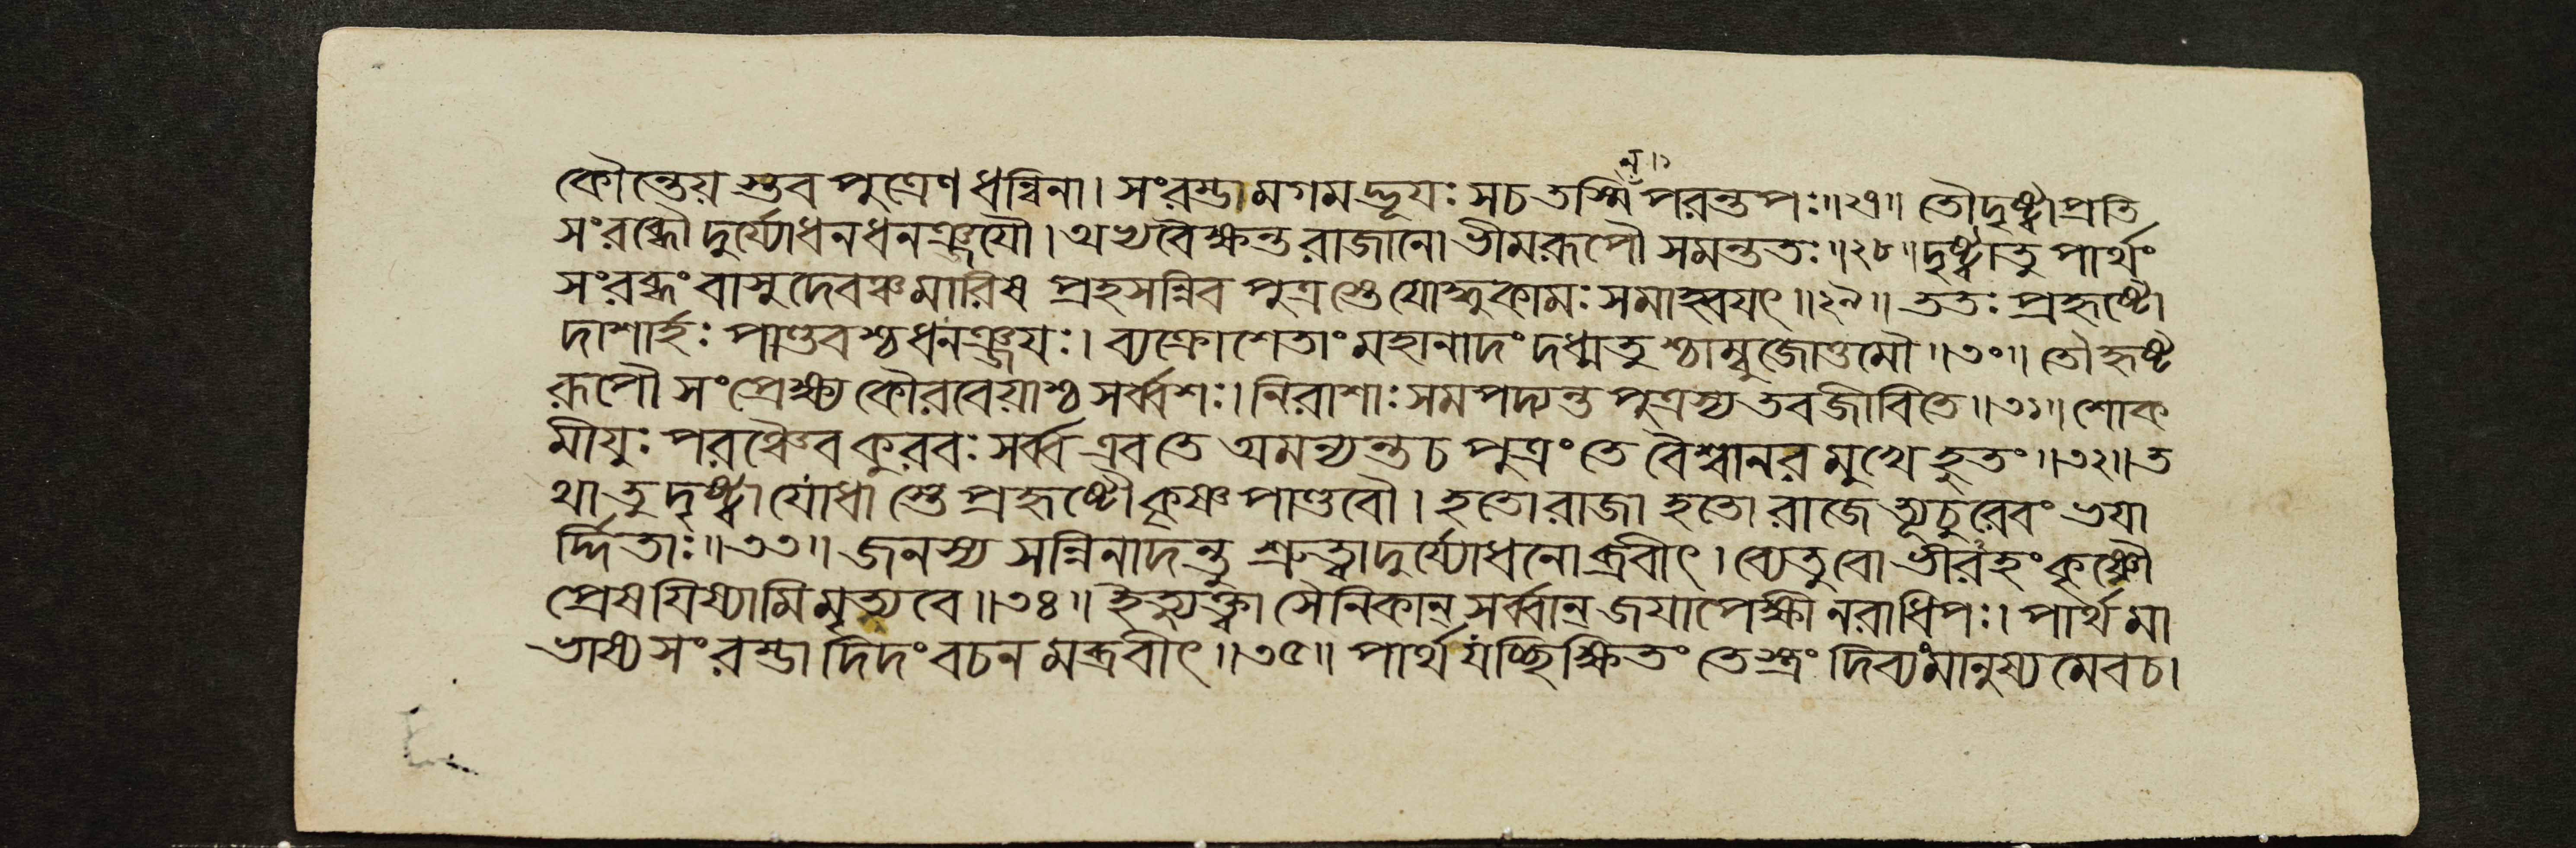 ন্।১
কৌন্তেয় স্তব পুত্রেণ ধন্বিনা। সংরম্ভামগমদ্ভূযঃ সচ তস্মিঁ পরন্তপঃ॥২৭॥ তৌদৃষ্ট্বাপ্রতি
সংরব্ধৌ দুর্য্যোধনধনঞ্জযৌ। অভ্যবৈক্ষন্ত রাজানো ভীমরূপৌ সমন্ততঃ॥২৮॥দৃষ্ট্বাতু পার্থং
সংরব্ধং বাসুদেবঞ্চমারিষ প্রহসন্নিব পুত্রস্তে যোদ্ধুকামঃ সমাহ্বযৎ॥২৯॥ ততঃ প্রহৃষ্টৌ
দাশার্হঃ পাণ্ডবশ্চধনঞ্জযঃ। ব্যক্রোশেতাং মহানাদং দধ্মতুশ্চাম্বুজোত্তমৌ॥৩০॥ তৌহৃষ্ট
রূপৌ সংপ্রেক্ষ্য কৌরবেয়াশ্চ সর্ব্বশঃ। নিরাশাঃ সমপদ্যন্ত পুত্রস্য তবজীবিতে॥৩১॥ শোক
মীযুঃ পরঞ্চৈব কুরবঃ সর্ব্ব এবতে অমন্যন্তচ পুত্রং তে বৈশ্বানর মুখে হুতং॥৩২॥ত
থা তু দৃষ্ট্বা যোধা স্তে প্রহৃষ্টৌ কৃষ্ণ পাণ্ডবৌ। হতো রাজা হতো রাজেত্যূচুরেবং ভযা
র্দ্দিতাঃ॥৩৩॥ জনস্য সন্নিনাদন্তু শ্রুত্বাদুর্য্যোধনোব্রবীৎ। ব্যেতুবো ভীরহং কৃষ্ণৌ
প্রেষযিষ্যামি মৃত্যবে॥৩৪॥ ইত্যুক্ত্বা সৈনিকান্ সর্ব্বান্ জযাপেক্ষী নরাধিপঃ। পার্থমা
ভাষ্য সংরম্ভাদিদং বচন মব্রবীৎ॥৩৫॥ পার্থ যচ্ছিক্ষিতং তেস্ত্রং দিব্যংমানুষ্য মেবচ।